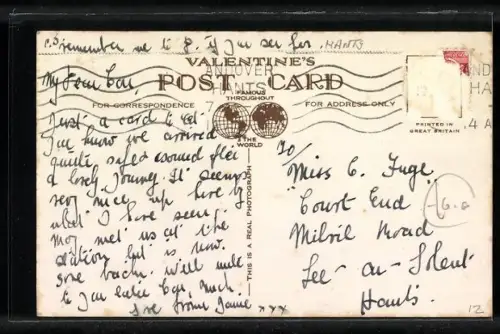 P.S remember me to G. if you see her. HANTS
VALENTINE'S
POST CARD
ANDOVER
HANTS
FOR CORRESPONDENCE
FAMOUS
THROUGHOUT
THE
WORLD
FOR ADDRESS ONLY
PRINTED IN
GREAT BRITAIN
4 A
THIS IS A REAL PHOTOGRAPH
My Dear
Just a card to let
you know we arrived
quite safe & sound after
a lovely journey. It seems
very nice up here by
what I have seen.
May met us at the
station but is now
gone back. Will write
to you later much
love from
xxx
To/
Miss C. Fuge
Court End
Road
Lee-on-Solent
Hants.
12